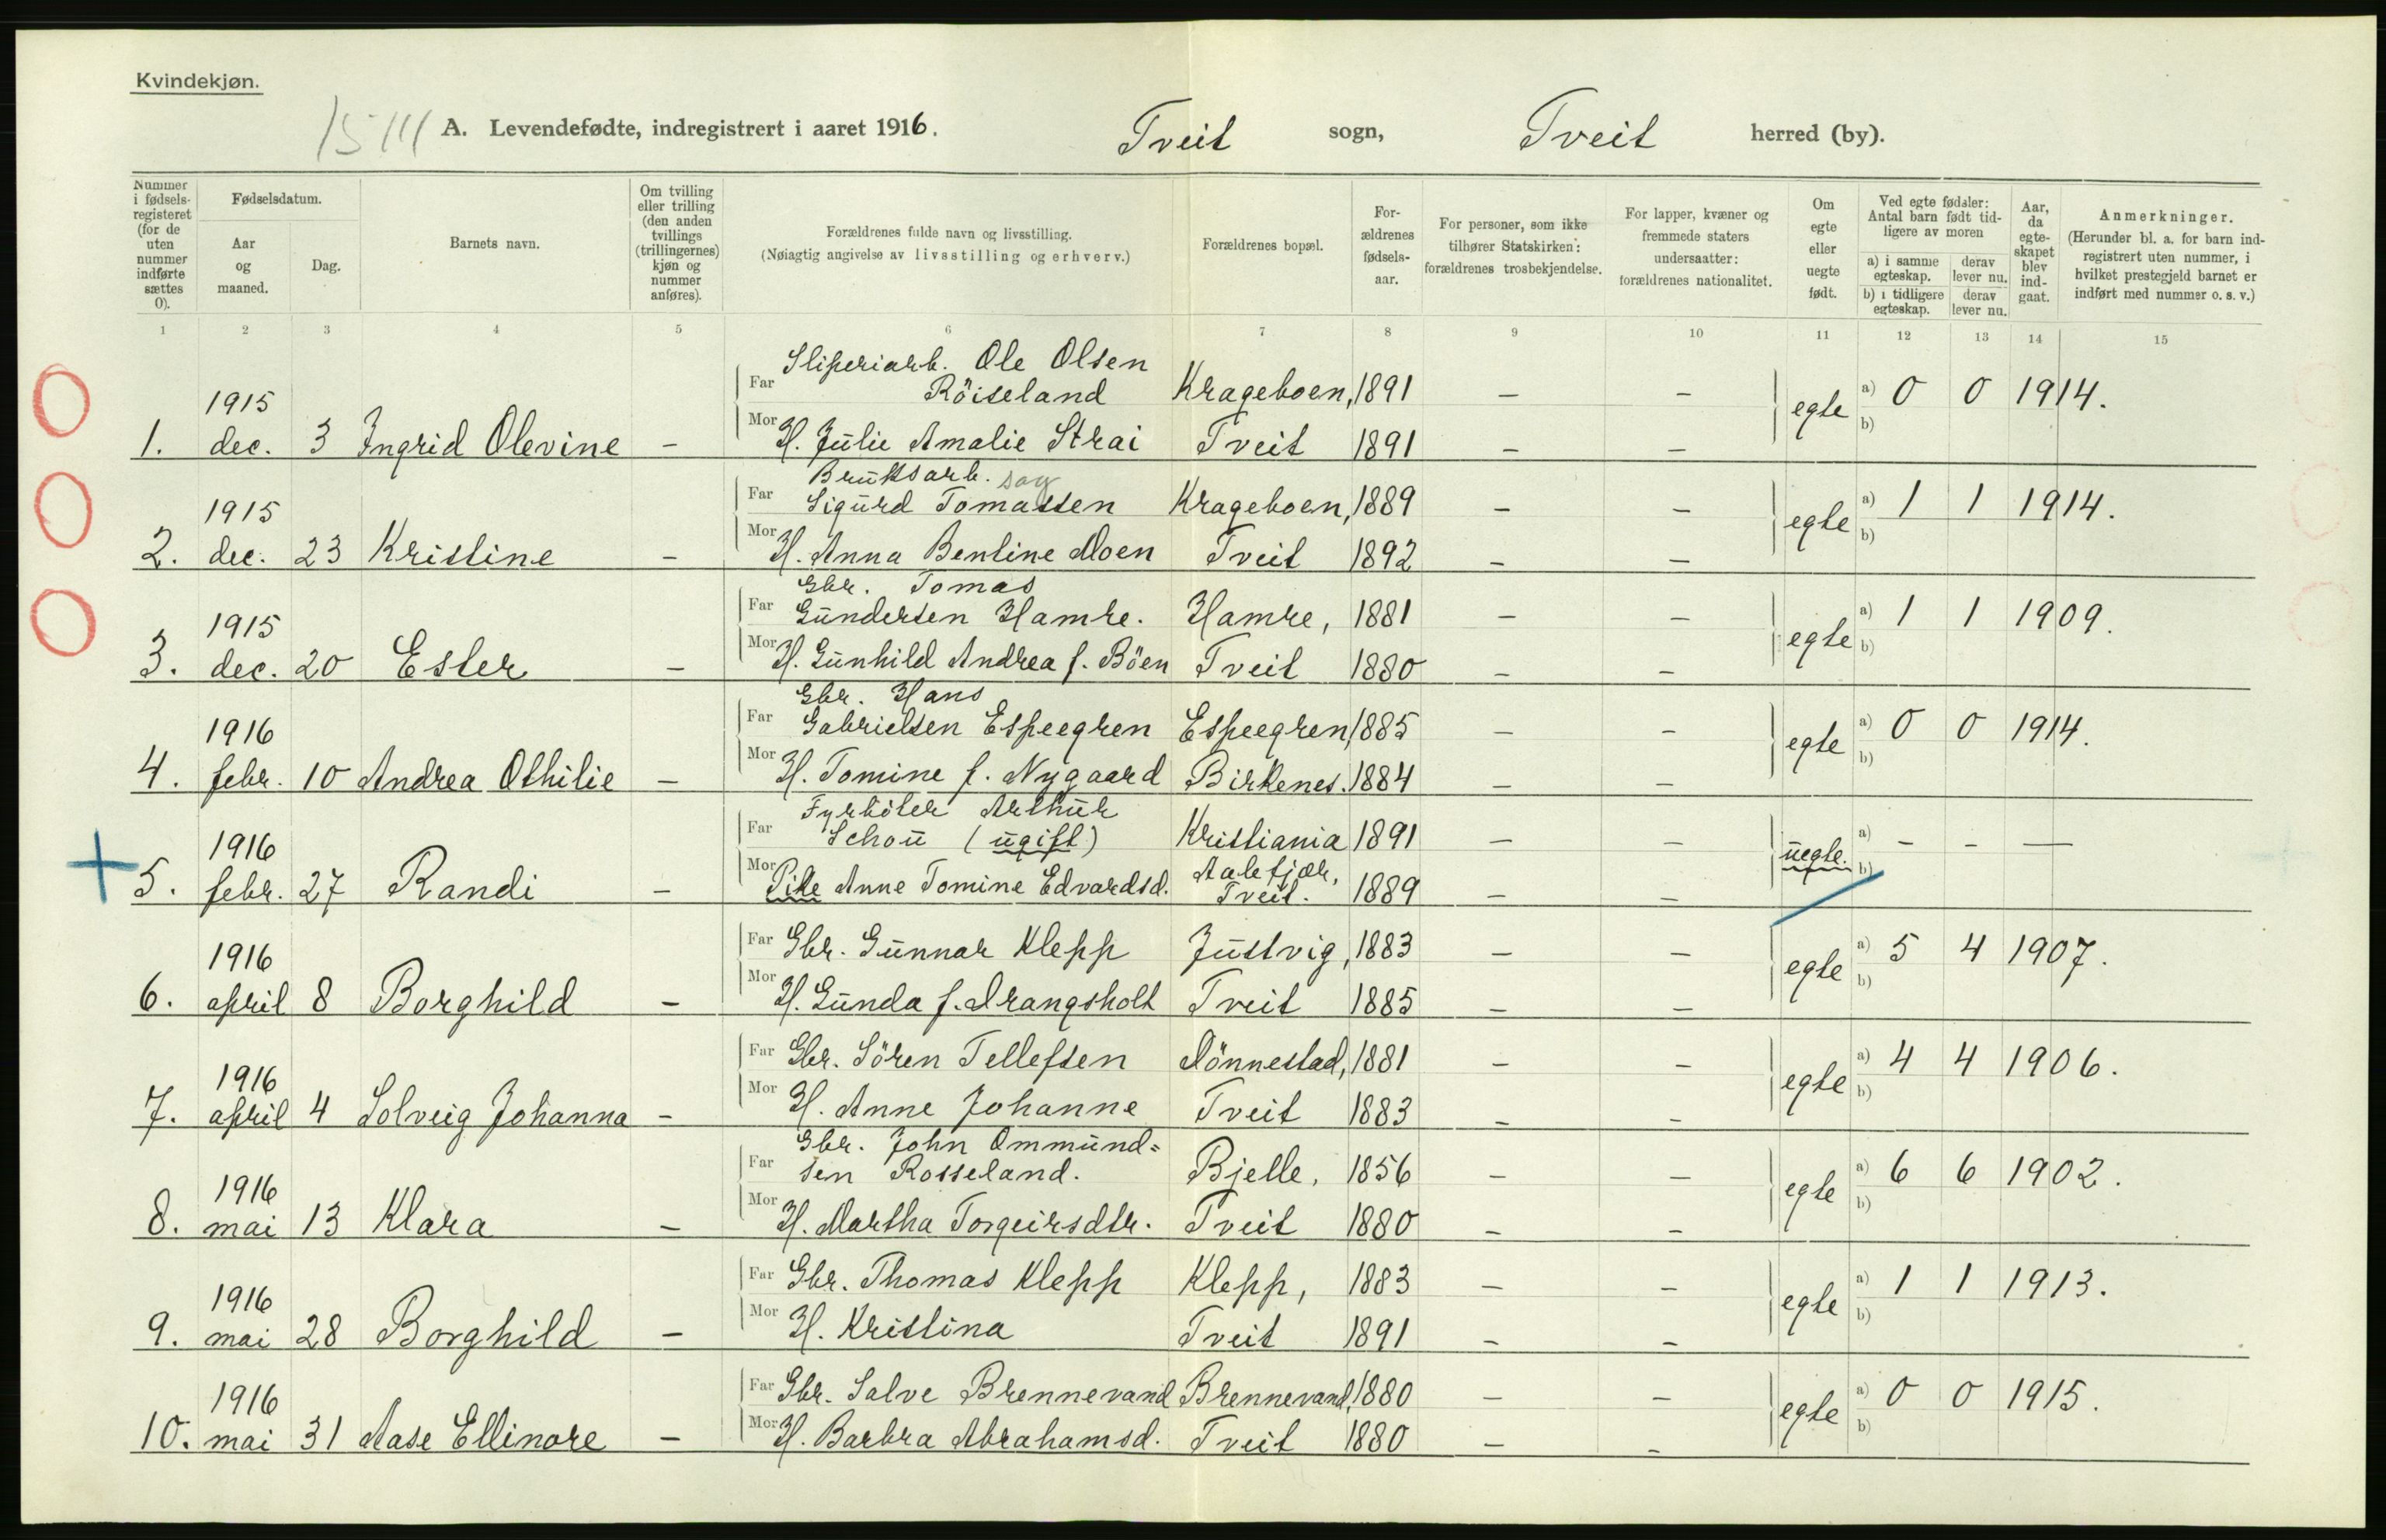 Kvindekjøn.
15111 A. Levendefødte, indregistrert i aaret 1916. Tveit sogn, Tveit herred (by).
Nummer i fødsels-registeret (for de uten nummer indførte sættes 0).
Fødselsdatum.
Aar og maaned.
Dag.
Barnets navn.
Om tvilling eller trilling (den anden tvillings (trillingernes) kjøn og nummer anføres).
Forældrenes fulde navn og livsstilling.
(Nøiagtig angivelse av livsstilling og erhverv.)
Forældrenes bopæl.
For-ældrenes fødsels-aar.
For personer, som ikke tilhører Statskirken: forældrenes trosbekjendelse.
For lapper, kvæner og fremmede staters undersaatter: forældrenes nationalitet.
Om egte eller uegte født.
Ved egte fødsler: Antal barn født tid-ligere av moren
a) i samme egteskap. derav lever nu.
b) i tidligere egteskap. derav lever nu.
Aar, da egte-skapet blev ind-gaat.
Anmerkninger.
(Herunder bl. a. for barn ind-registrert uten nummer, i hvilket prestegjeld barnet er indført med nummer o. s. v.)
1 2 3 4 5 6 7 8 9 10 11 12 13 14 15
Sliperiarb. Ole Olsen
1915 Far Röiseland Krageboen, 1891 – – egte a) 0 0 1914.
1. dec. 3 Ingrid Olevine – Mor H. Julie Amalie Strai Tveit 1891 – – b)
Bruksarb. sag
1915 Far Sigurd Tomassen Krageboen, 1889 – – egte a) 1 1 1914.
2. dec. 23 Kristine – Mor H. Anna Bentine Moen Tveit 1892 – – b)
Gbr. Tomas
1915 Far Gundersen Hamre. Hamre, 1881 – – egte a) 1 1 1909.
3. dec. 20 Ester – Mor H. Gunhild Andrea f. Böen Tveit 1880 – – b)
Gbr. Hans
1916 Far Gabrielsen Espeegren Espeegren, 1885 – – egte a) 0 0 1914.
4. febr. 10 Andrea Othilie – Mor H. Tomine f. Nygaard Birkenes. 1884 – – b)
Fyrböter Arthur
1916 Far Schou (ugift) Kristiania 1891 – – uegte. a) – – –
5. febr. 27 Randi – Mor Pike Anne Tomine Edvardsd. Aalefjær, Tveit. 1889 – – b)
1916 Far Gbr. Gunnar Klepp Justvig, 1883 – – egte a) 5 4 1907.
6. april 8 Borghild – Mor H. Gunda f. Drangsholt Tveit 1885 – – b)
1916 Far Gbr. Sören Tellefsen Dönnestad, 1881 – – egte a) 4 4 1906.
7. april 4 Solveig Johanna – Mor H. Anne Johanne Tveit 1883 – – b)
Gbr. John Ommund=
1916 Far sen Rosseland. Bjelle, 1856 – – egte a) 6 6 1902.
8. mai 13 Klara – Mor H. Martha Torgeirsdtr. Tveit 1880 – – b)
1916 Far Gbr. Thomas Klepp Klepp, 1883 – – egte a) 1 1 1913.
9. mai 28 Borghild – Mor H. Kristina Tveit 1891 – – b)
1916 Far Gbr. Salve Brennevand Brennevand, 1880 – – egte a) 0 0 1915.
10. mai 31 Aase Ellinore – Mor H. Barbra Abrahamsd. Tveit 1880 – – b)